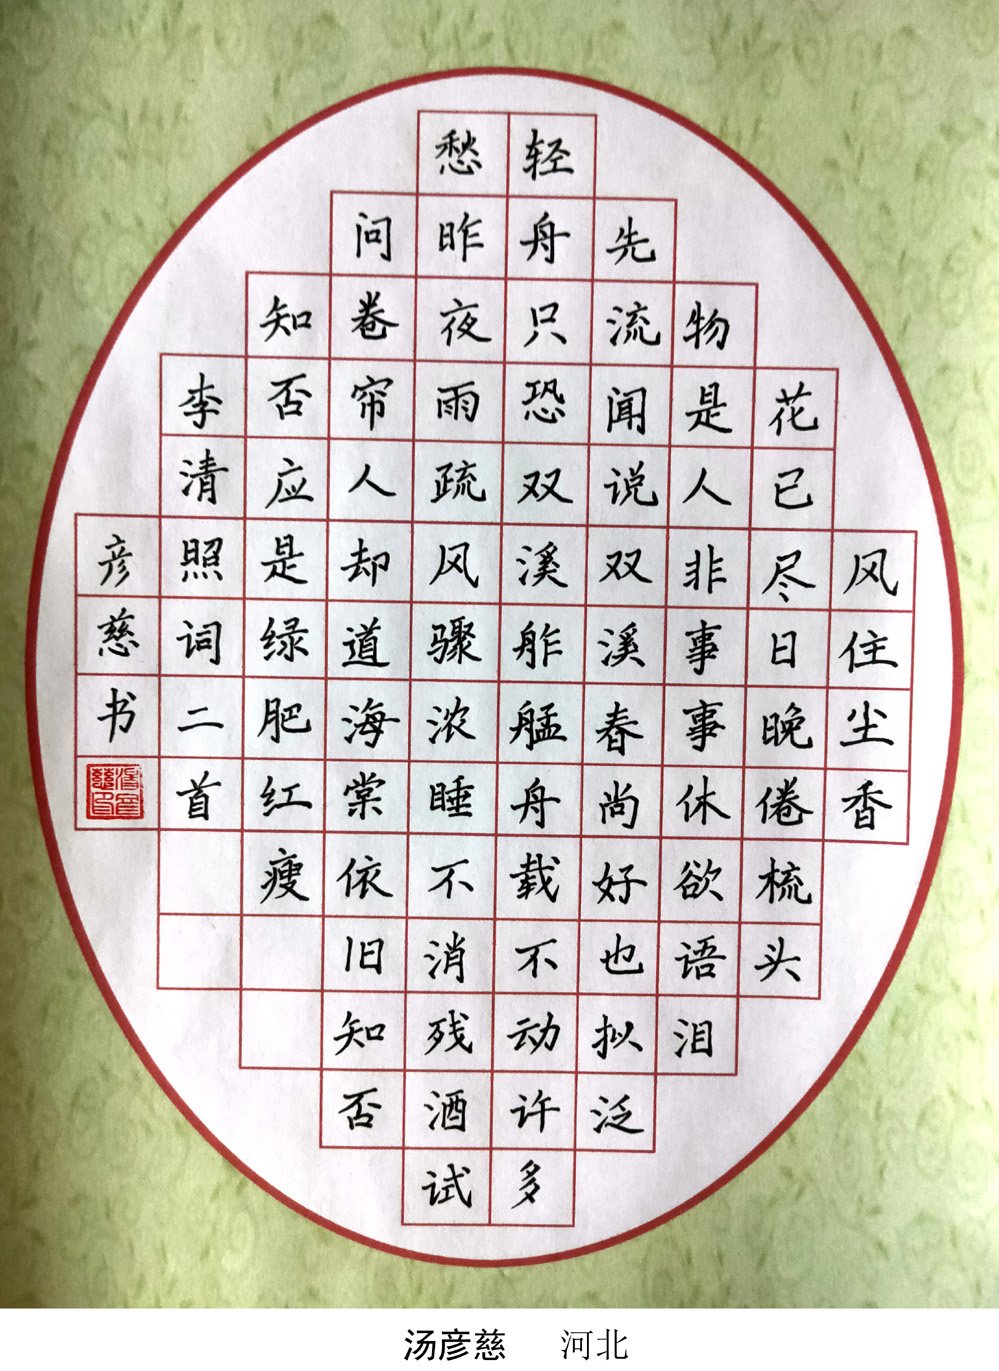 风住尘香
花已尽日晚倦梳头
物是人非事事休欲语泪
先流闻说双溪春尚好也拟泛
轻舟只恐双溪舴艋舟载不动许多
愁昨夜雨疏风骤浓睡不消残酒试
问卷帘人却道海棠依旧知否
知否应是绿肥红瘦
李清照词二首
彦慈书
汤彦慈印
汤彦慈 河北